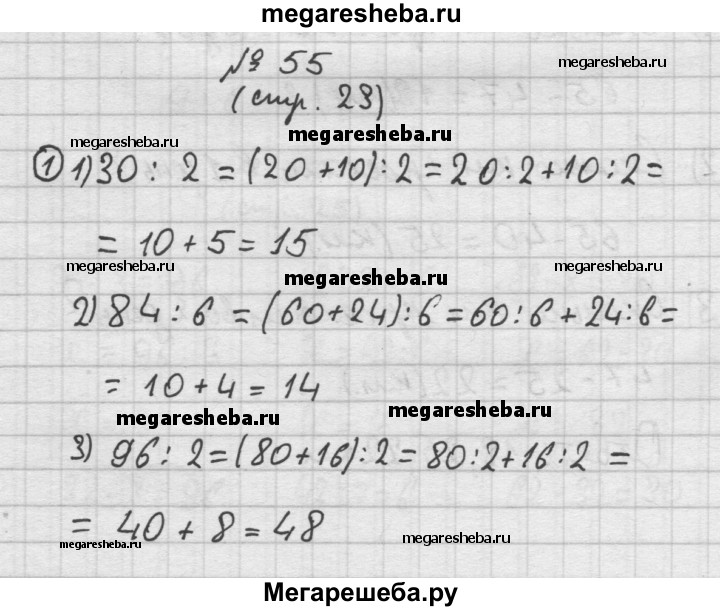 megaresheba.ru
№ 55
megaresheba.ru
(стр. 23)
megaresheba.ru
megaresheba.ru
① 1) 30 : 2 = (20 + 10) : 2 = 20 : 2 + 10 : 2 =
= 10 + 5 = 15
megaresheba.ru
megaresheba.ru
megaresheba.ru
2) 84 : 6 = (60 + 24) : 6 = 60 : 6 + 24 : 6 =
= 10 + 4 = 14
megaresheba.ru
megaresheba.ru
3) 96 : 2 = (80 + 16) : 2 = 80 : 2 + 16 : 2 =
= 40 + 8 = 48
megaresheba.ru
megaresheba.ru
Мегарешеба.ру